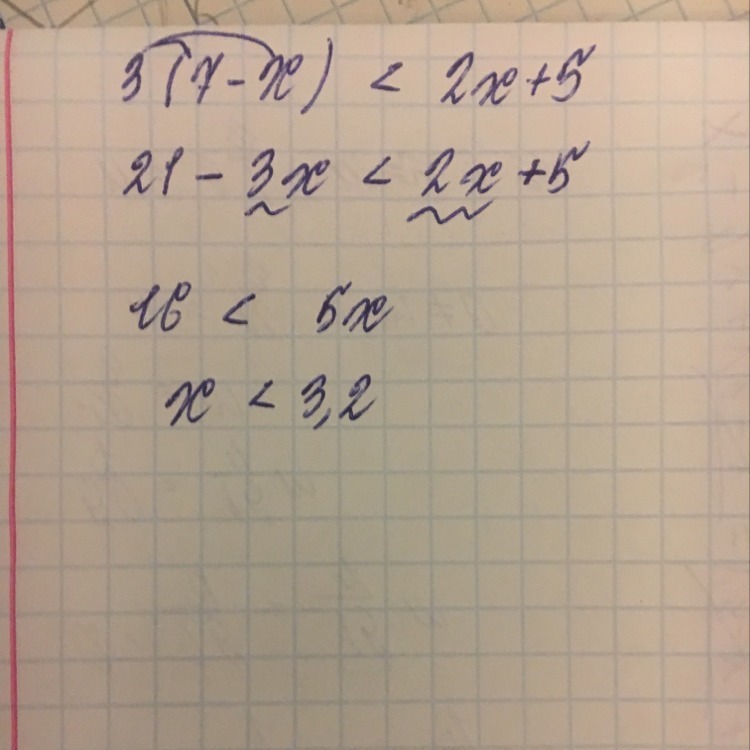 3(7-x) < 2x+5
21 - 3x < 2x +5
16 < 5x
x < 3,2